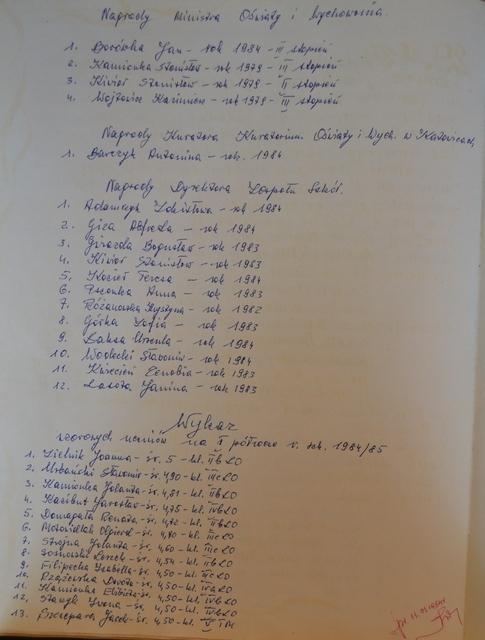 Nagrody Ministra Oświaty i Wychowania.
1. Borówka Jan - rok 1984 - III stopień
2. Kamionka Stanisław - rok 1979 - III stopień
3. Kiwior Stanisław - rok 1979 - II stopień
4. Wojtowicz Kazimierz - rok 1979 - III stopień
Nagrody Kuratora Kuratorium Oświaty i Wych. w Katowicach,
1. Barczyk Antonina - rok. 1984
Nagrody Dyrektora Zespołu Szkół.
1. Adamczyk Zdzisława - rok 1984
2. Giza Alfreda - rok 1984
3. Bogusław - rok 1983
4. Kiwior Stanisław - rok 1983
5. Kozieł Teresa - rok 1984
6. Anna - rok 1983
7. Różanowska Krystyna - rok 1982
8. Górka Zofia - rok 1983
9. Laksa Urszula - rok 1984
10. Wodecki Sławomir - rok 1984
11. Kwiecień Zenobia - rok 1983
12. Lasota Janina - rok 1983
Wykaz
wzorowych uczniów na I półrocze r. szk. 1984/85
1. Zielnik Joanna - śr. 5 - kl. II b LO
2. Urbański Sławomir - śr. 4,90 - kl. III c LO
3. Kamionka Jolanta - śr. 4,81 - kl. IV b LO
4. Kazibut Jarosław - śr. 4,75 - kl. IV b LO
5. Domagała Renata - śr. 4,72 - kl. II b LO
6. Olgierd - śr. 4,70 - kl. III c LO
7. Strojna Jolanta - śr. 4,60 - kl. III c LO
8. Sosnowski Leszek - śr. 4,54 - kl. IV b LO
9. Filipecka Izabella - śr. 4,50 - kl. III c LO
10. Rzążewska Dorota - śr. 4,50 - kl. IV a LO
11. Kamionka Elżbieta - śr. 4,50 - kl. IV b LO
12. Stasyk Iwona - śr. 4,50 - kl. IV b LO
13. Szczepara Jacek - śr. 4,50 - kl. V TM